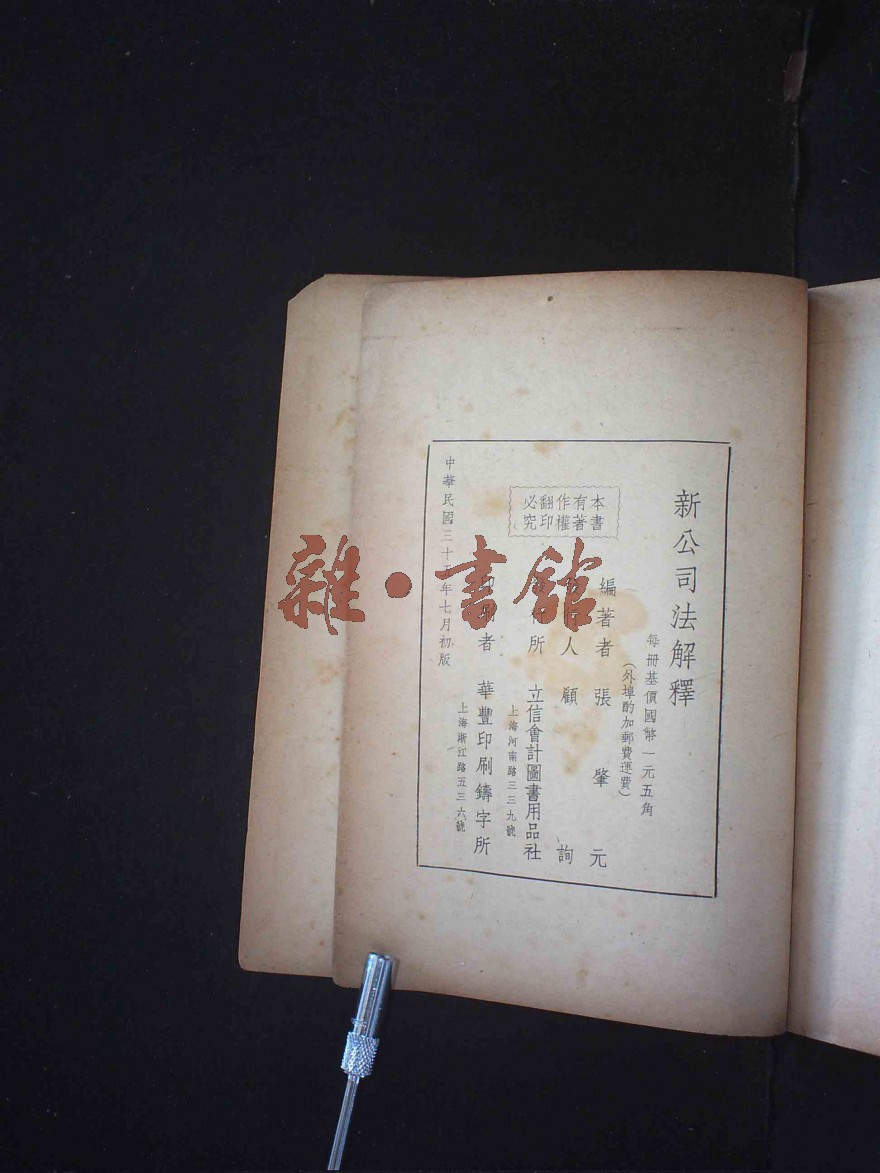 新公司法解釋
每冊基價國幣一元五角
(外埠酌加郵費運費)
本書有著作權翻印必究
編著者 張肇元
發行人 顧詢
發行所 立信會計圖書用品社
上海河南路三三九號
印刷者 華豐印刷鑄字所
上海浙江路五三六號
中華民國三十五年七月初版
雜·書館